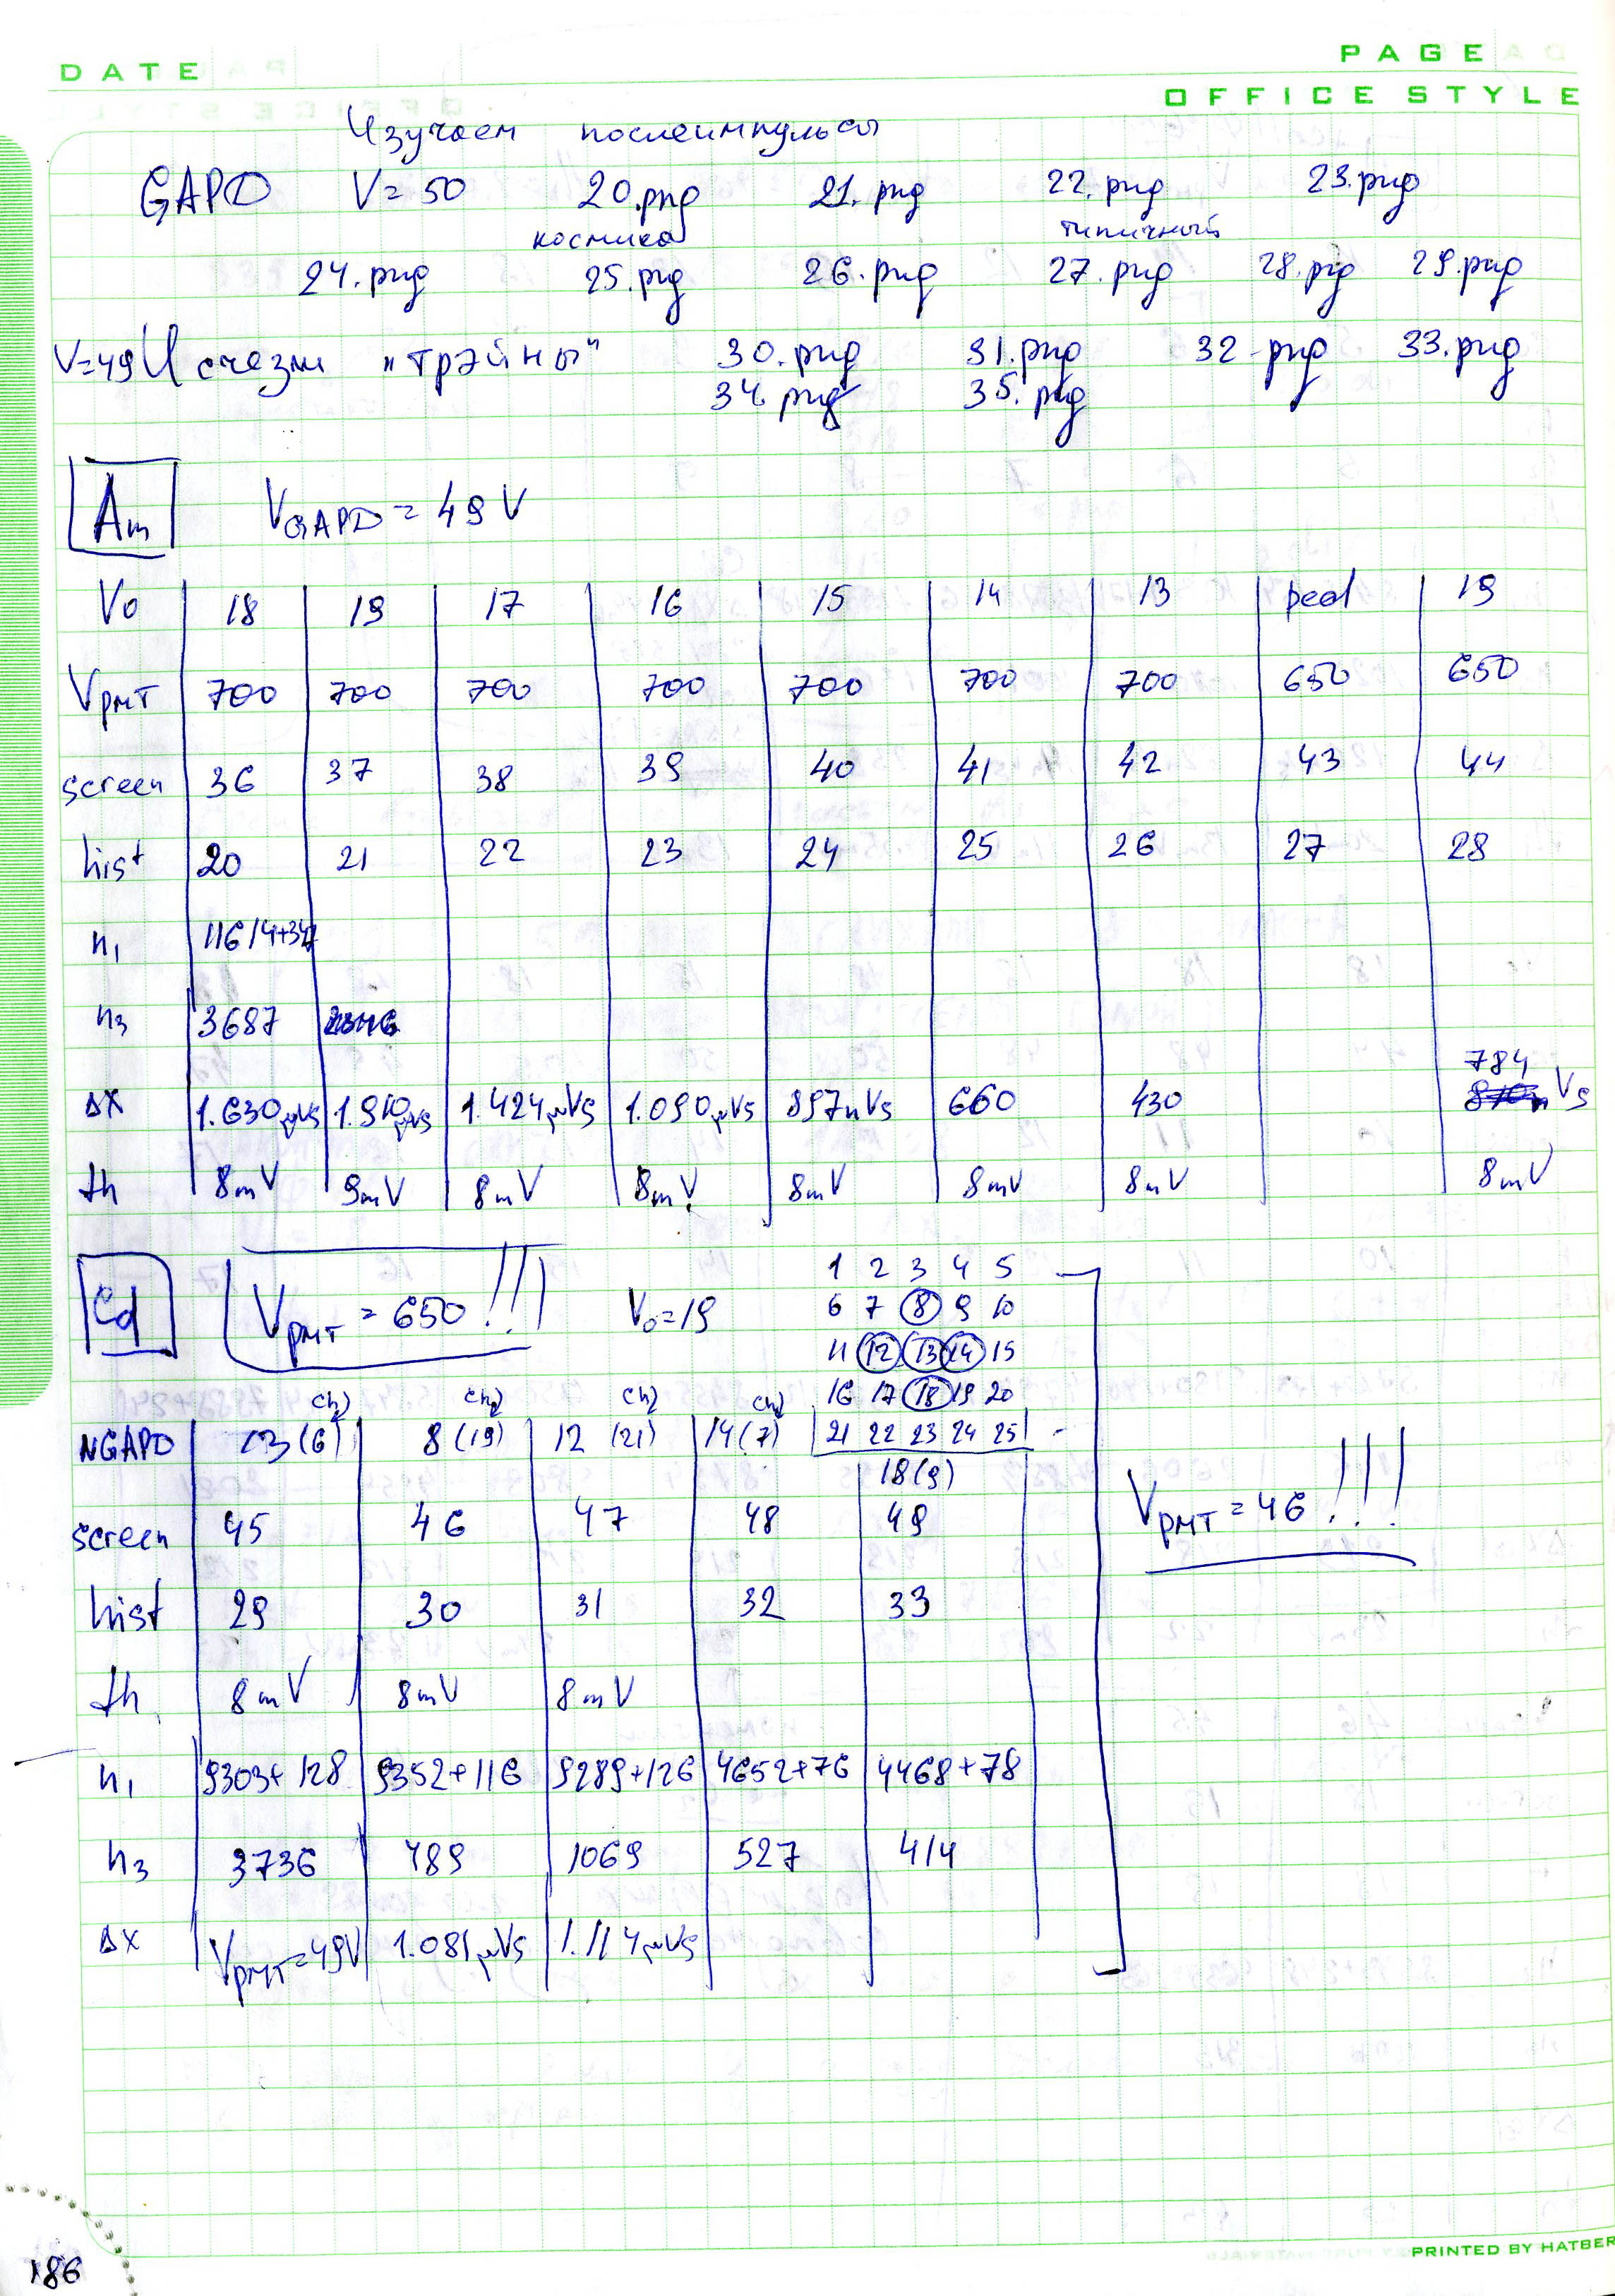 DATE
PAGE
OFFICE STYLE
Изучаем послеимпульсы
GAPD V=50 20.png 21.png 22.png 23.png
космика типичный
24.png 25.png 26.png 27.png 28.png 29.png
V=49 Исчезли "трэйны" 30.png 31.png 32.png 33.png
34.png 35.png
Am VGAPD = 49 V
V0 18 19 17 16 15 14 13 ped 19
VPMT 700 700 700 700 700 700 700 650 650
screen 36 37 38 39 40 41 42 43 44
hist 20 21 22 23 24 25 26 27 28
n1 11614+347
n3 3687
784
Δx 1.630μVs 1.910μVs 1.424μVs 1.090μVs 897nVs 660 430 nVs
th 8mV 9mV 8mV 8mV 8mV 8mV 8mV 8mV
Cd VPMT = 650 !!! V0=19
1 2 3 4 5
6 7 8 9 10
11 12 13 14 15
16 17 18 19 20
21 22 23 24 25
ch) ch) ch) ch)
NGAPD 13(6) 8(19) 12 (21) 14(7) 18(9)
VPMT = 46 !!!
screen 45 46 47 48 49
hist 29 30 31 32 33
th 8mV 8mV 8mV
n1 9303+128 9352+116 9289+126 4652+76 4468+78
n3 3736 489 1069 527 414
Δx VPMT=49V 1.081μVs 1.114μVs
186
PRINTED BY HATBER